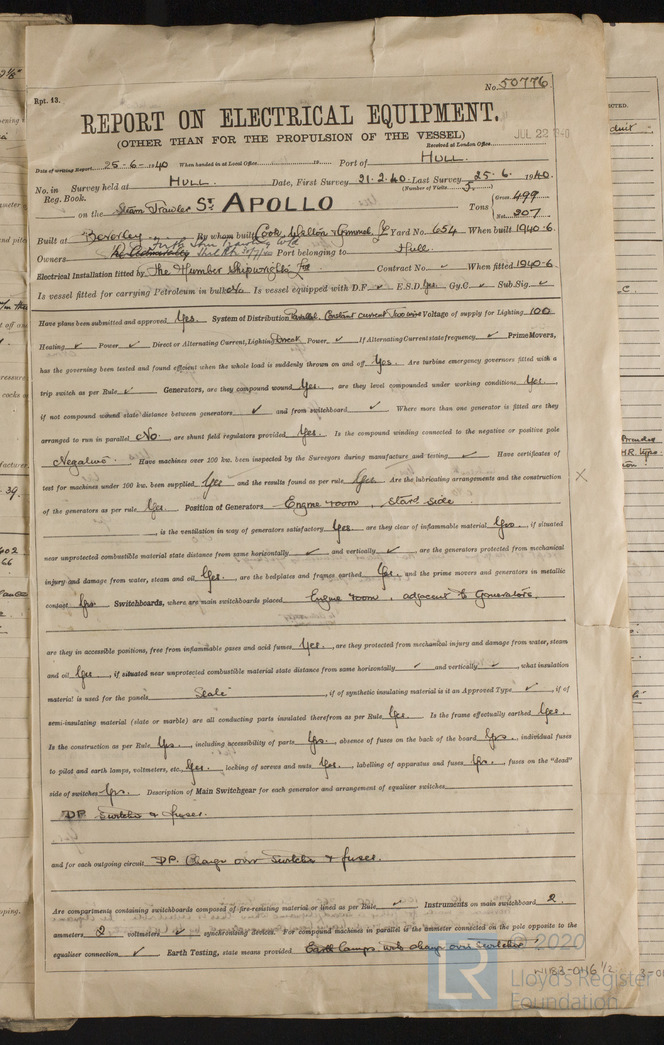 No. 50776
Rpt. 13.
REPORT ON ELECTRICAL EQUIPMENT.
(OTHER THAN FOR THE PROPULSION OF THE VESSEL)
JUL 22 1940
Received at London Office
Date of writing Report 25-6-1940 When handed in at Local Office 19 Port of HULL.
No. in Survey held at HULL. Date, First Survey 21.2.40 Last Survey 25.6.1940.
Reg. Book. (Number of Visits 5)
on the Steam Trawler St APOLLO Tons { Gross 499 Net 207
Built at Beverley By whom built Cook, Welton & Gemmell, Ld Yard No. 654 When built 1940-6
Owners The Admiralty Port belonging to Hull
Electrical Installation fitted by The Humber Shipwrights Ld Contract No. ✓ When fitted 1940-6
Is vessel fitted for carrying Petroleum in bulk No Is vessel equipped with D.F. ✓ E.S.D. Yes Gy.C. ✓ Sub.Sig. ✓
Have plans been submitted and approved Yes. System of Distribution Parallel. Constant current Two wire Voltage of supply for Lighting 100
Heating ✓ Power ✓ Direct or Alternating Current, Lighting Direct Power ✓ If Alternating Current state frequency ✓ Prime Movers,
has the governing been tested and found efficient when the whole load is suddenly thrown on and off Yes. Are turbine emergency governors fitted with a
trip switch as per Rule ✓ Generators, are they compound wound Yes, are they level compounded under working conditions Yes,
if not compound wound state distance between generators ✓ and from switchboard ✓ Where more than one generator is fitted are they
arranged to run in parallel No, are shunt field regulators provided Yes. Is the compound winding connected to the negative or positive pole
Negative. Have machines over 100 kw. been inspected by the Surveyors during manufacture and testing ✓ Have certificates of
test for machines under 100 kw. been supplied Yes and the results found as per rule Yes Are the lubricating arrangements and the construction
of the generators as per rule Yes Position of Generators Engine room, starb side
, is the ventilation in way of generators satisfactory Yes, are they clear of inflammable material Yes, if situated
near unprotected combustible material state distance from same horizontally ✓ and vertically ✓, are the generators protected from mechanical
injury and damage from water, steam and oil Yes, are the bedplates and frames earthed Yes and the prime movers and generators in metallic
contact Yes Switchboards, where are main switchboards placed Engine room, adjacent to Generators.
are they in accessible positions, free from inflammable gases and acid fumes Yes, are they protected from mechanical injury and damage from water, steam
and oil Yes, if situated near unprotected combustible material state distance from same horizontally ✓ and vertically ✓, what insulation
material is used for the panels Slate, if of synthetic insulating material is it an Approved Type ✓, if of
semi-insulating material (slate or marble) are all conducting parts insulated therefrom as per Rule Yes. Is the frame effectually earthed Yes.
Is the construction as per Rule Yes, including accessibility of parts Yes, absence of fuses on the back of the board Yes, individual fuses
to pilot and earth lamps, voltmeters, etc. Yes, locking of screws and nuts Yes, labelling of apparatus and fuses Yes, fuses on the "dead"
side of switches Yes. Description of Main Switchgear for each generator and arrangement of equaliser switches
DP Switches & fuses.
and for each outgoing circuit DP. Change over Switches & fuses.
Are compartments containing switchboards composed of fire-resisting material or lined as per Rule ✓ Instruments on main switchboard 2
ammeters 2 voltmeters ✓ synchronising devices. For compound machines in parallel is the ammeter connected on the pole opposite to the
equaliser connection ✓ Earth Testing, state means provided Earth lamps with change over switches
© 2020
W183-0146 1/2
LR Lloyd's Register
Foundation